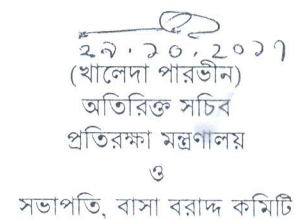 ২৯.১০.২০১৭
(খালেদা পারভীন)
অতিরিক্ত সচিব
প্রতিরক্ষা মন্ত্রণালয়
ও
সভাপতি, বাসা বরাদ্দ কমিটি